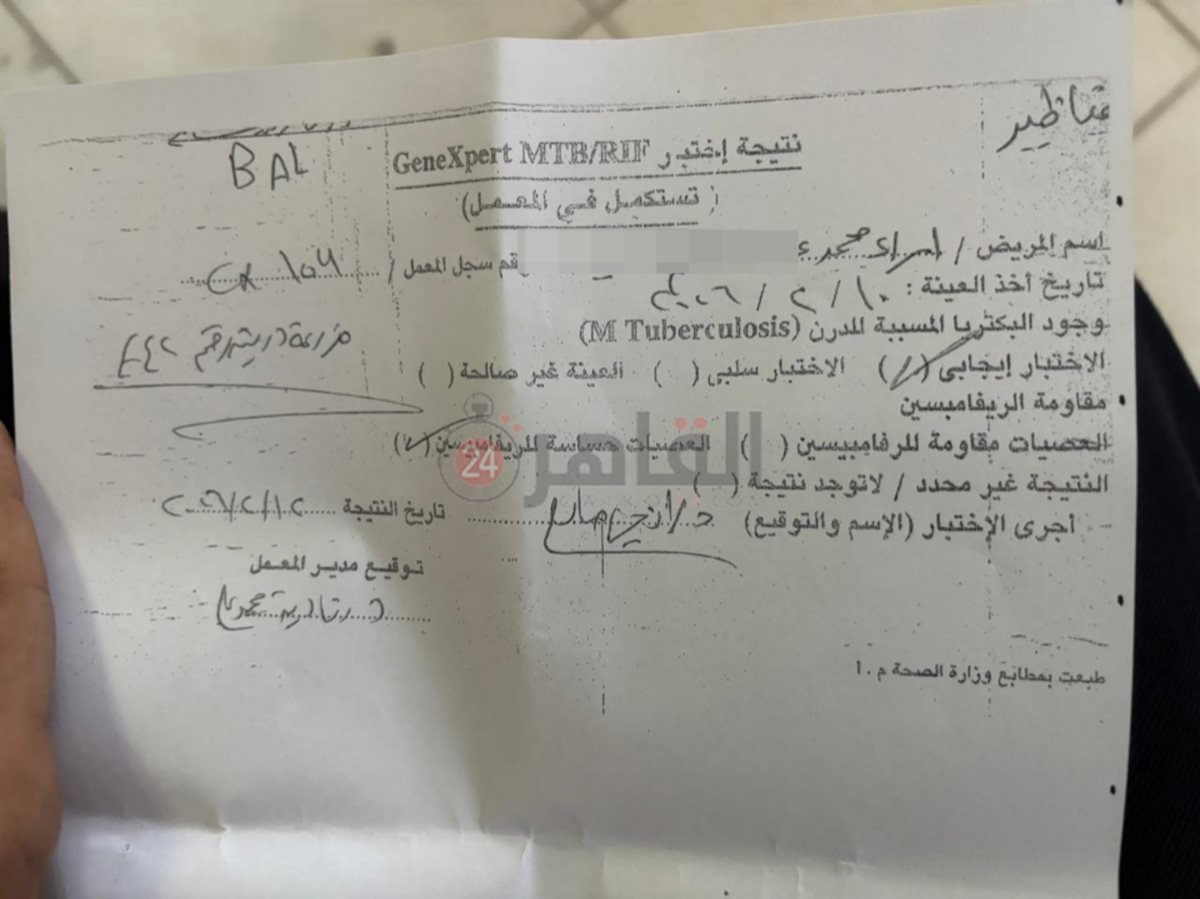 مناظير
BAL
نتيجة إختبر GeneXpert MTB/RIF
( تستكمل في المعمل)
اسم المريض / اسراء محمد
رقم سجل المعمل /
تاريخ أخذ العينة : ١٠ / ٢ / ٢٠٢٦
وجود البكتريا المسببة للدرن (M Tuberculosis)
مزرعة درن رقم
الاختبار إيجابى (/) الاختبار سلبى ( ) العينة غير صالحة ( )
مقاومة الريفامبسين
العصيات مقاومة للرفامبيسين ( ) العصيات حساسة للريفامبيسين (/)
القاهرة 24
النتيجة غير محدد / لاتوجد نتيجة ( )
أجرى الإختبار (الإسم والتوقيع)
تاريخ النتيجة
توقيع مدير المعمل
طبعت بمطابع وزارة الصحة م .1